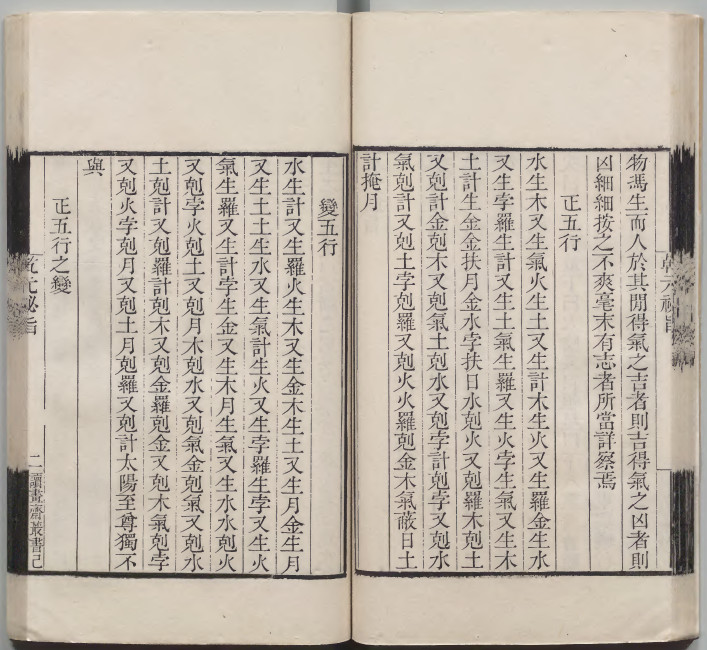 物馮生而人於其閒得氣之吉者則吉得氣之凶者則
凶細細按之不爽毫末有志者所當詳察焉
正五行
水生木又生氣火生土又生計木生火又生羅金生水
又生孛羅生計又生土氣生羅又生火孛生氣又生木
土計生金金扶月金水孛扶日水剋火又剋羅木剋土
又剋計金剋木又剋氣土剋水又剋孛計剋孛又剋水
氣剋計又剋土孛剋羅又剋火火羅剋金木氣蔽日土
計掩月
變五行
水生計又生羅火生木又生金木生土又生月金生月
又生土土生水又生氣計生火又生孛羅生孛又生火
氣生羅又生計孛生金又生木月生氣又生水水剋火
又剋孛火剋土又剋月木剋水又剋氣金剋氣又剋水
土剋計又剋羅計剋木又剋金羅剋金又剋木氣剋孛
又剋火孛剋月又剋土月剋羅又剋計太陽至尊獨不
與
正五行之變
乾元秘旨
二
讀畫齋叢書己